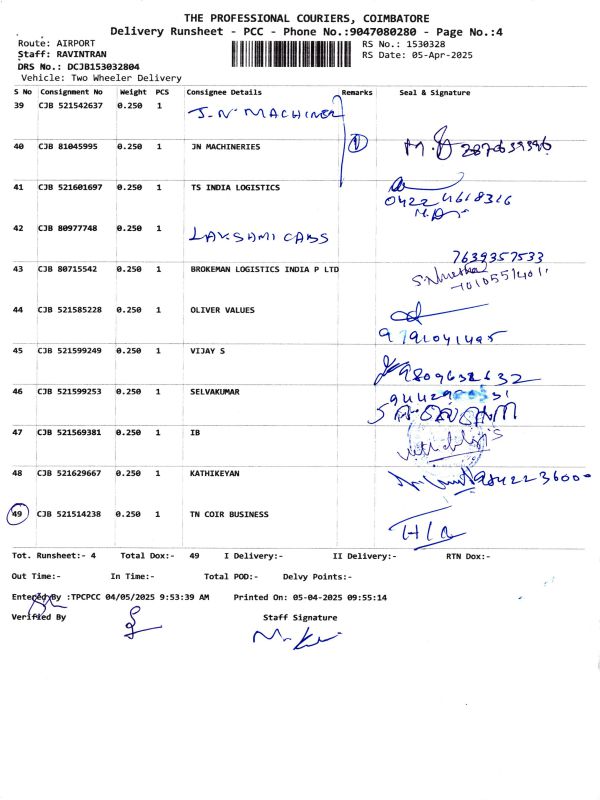 THE PROFESSIONAL COURIERS, COIMBATORE
Delivery Runsheet - PCC - Phone No.:9047080280 - Page No.:4
Route: AIRPORT RS No.: 1530328
Staff: RAVINTRAN RS Date: 05-Apr-2025
DRS No.: DCJB153032804
Vehicle: Two Wheeler Delivery
S No Consignment No Weight PCS Consignee Details Remarks Seal & Signature
39 CJB 521542637 0.250 1 J.N. MACHINER
40 CJB 81045995 0.250 1 JN MACHINERIES 1
41 CJB 521601697 0.250 1 TS INDIA LOGISTICS
0422 4618316
42 CJB 80977748 0.250 1 LAKSAMI CABS
7639357533
43 CJB 80715542 0.250 1 BROKEMAN LOGISTICS INDIA P LTD
44 CJB 521585228 0.250 1 OLIVER VALUES
9791041495
45 CJB 521599249 0.250 1 VIJAY S
9809632632
46 CJB 521599253 0.250 1 SELVAKUMAR
47 CJB 521569381 0.250 1 IB
48 CJB 521629667 0.250 1 KATHIKEYAN
49 CJB 521514238 0.250 1 TN COIR BUSINESS
Tot. Runsheet:- 4 Total Dox:- 49 I Delivery:- II Delivery:- RTN Dox:-
Out Time:- In Time:- Total POD:- Delvy Points:-
Entered By :TPCPCC 04/05/2025 9:53:39 AM Printed On: 05-04-2025 09:55:14
Verified By Staff Signature